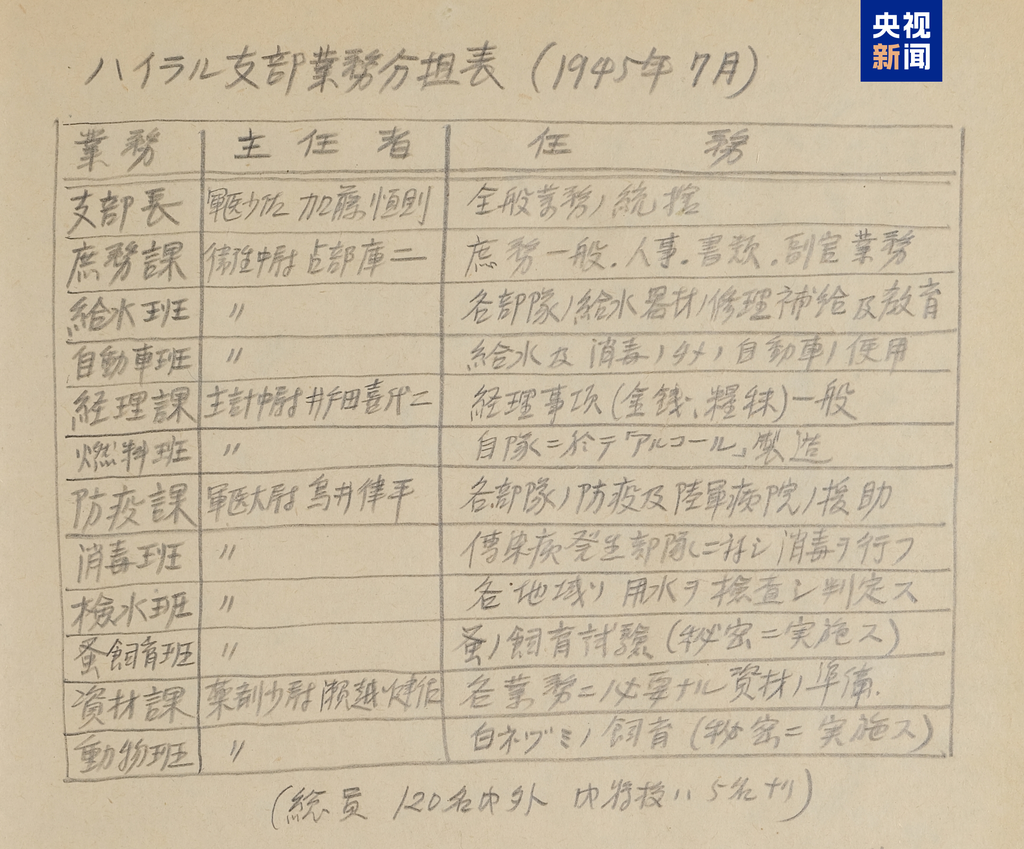 央视
新闻
ハイラル支部業務分担表(1945年7月)
業務 主任者 任務
支部長 軍医少佐 加藤恒則 全般業務ノ統括
庶務課 衛生中尉 占部庫二 庶務一般.人事.書類.副官業務
給水班 〃 各部隊ノ給水器材ノ修理補給及教育
自動車班 〃 給水及消毒ノタメノ自動車ノ使用
経理課 主計中尉 井田喜代二 経理事項(金銭、糧秣)一般
燃料班 〃 自隊ニ於テ「アルコール」製造
防疫課 軍医大尉 鳥井律平 各部隊ノ防疫及陸軍病院ノ援助
消毒班 〃 傳染病発生部隊ニ対シ消毒ヲ行フ
検水班 〃 各地域ノ用水ヲ検査シ判定ス
蚤飼育班 〃 蚤ノ飼育試験(秘密ニ実施ス)
資材課 薬剤少尉 瀬越健 各業務ニ必要ナル資材ノ準備.
動物班 〃 白ネヅミノ飼育(秘密ニ実施ス)
(総員 120名内外 内将校ハ5名ナリ)